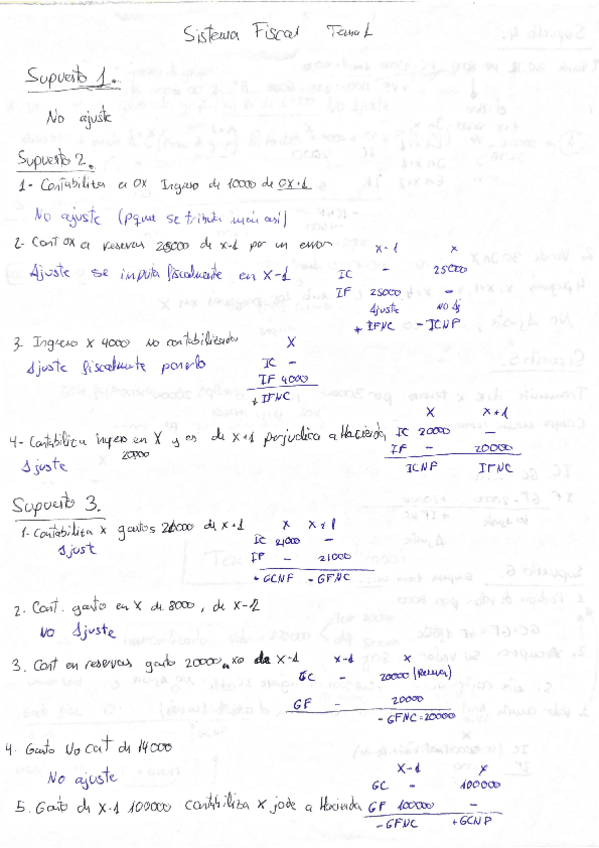 Sistema Fiscal Tema 1
Supuesto 1.
No ajuste
Supuesto 2.
1- Contabiliza en 0X Ingreso de 10000 de 0X+1
No ajuste (pque se tributa más así)
2- Cont 0X a reservas 25000 de x-1 por un error
Ajuste se imputa fiscalmente en X-1
x-1 x
IC - 25000
IF 25000 -
Ajuste No Aj
+ IFNC - ICNF
3. Ingreso X 4000 no contabilizado
Ajuste fiscalmente ponerlo
X
IC -
IF 4000
+ IFNC
4- Contabiliza ingreso en X y es de x+1 perjudica a Hacienda
20000
Ajuste
X x+1
IC 20000 -
IF - 20000
ICNF IFNC
Supuesto 3.
1- Contabiliza X gastos 21000 de x+1
Ajust
x x+1
IC 21000 -
IF - 21000
+ GCNF - GFNC
2. Cont. gasto en X de 8000, de X-2
No Ajuste
3. Cont en reservas gasto 20000, X-1
x-1 x
GC - 20000 (Reserva)
GF - 20000
- GFNC=20000
4. Gasto No Cat de 14000
No ajuste
5. Gasto de X-1 100000 contabiliza X jode a Hacienda
X-1 X
GC - 100000
GF 100000 -
- GFNC +GCNF